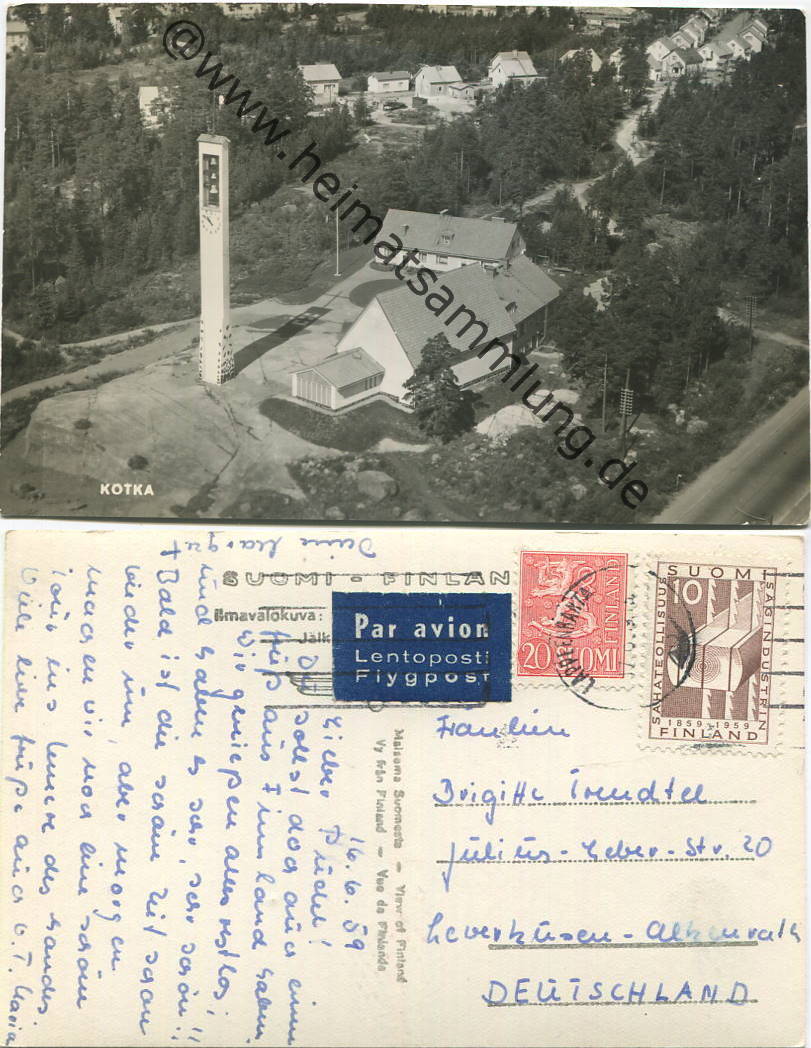 @www.heimatsammlung.de
KOTKA
SUOMI - FINLAN
Ilmavalokuva:
Jälk
Par avion
Lentoposti
Flygpost
LAPPEENRANTA
20 SUOMI
FINLAND
SUOMI
10
SAHATEOLLISUUS
SÅGINDUSTRIN
1859-1959
FINLAND
Maisema Suomesta — View of Finland
Vy från Finland — Vue de Finlande
Fräulein
Brigitte Trendtel
Julius-Leber-Str. 20
Leverkusen-Alkenrath
DEUTSCHLAND
16.6.59
Lieber
Du sollst doch auch einen
Gruß aus Finnland haben.
Wir genießen alles restlos,
und haben es sehr, sehr schön!!
Bald ist die schöne Zeit schon
wieder um, aber morgen
machen wir noch eine schöne
Tour ins Innere des Landes.
Viele liebe Grüße auch v. T. Maria
Deine Margret